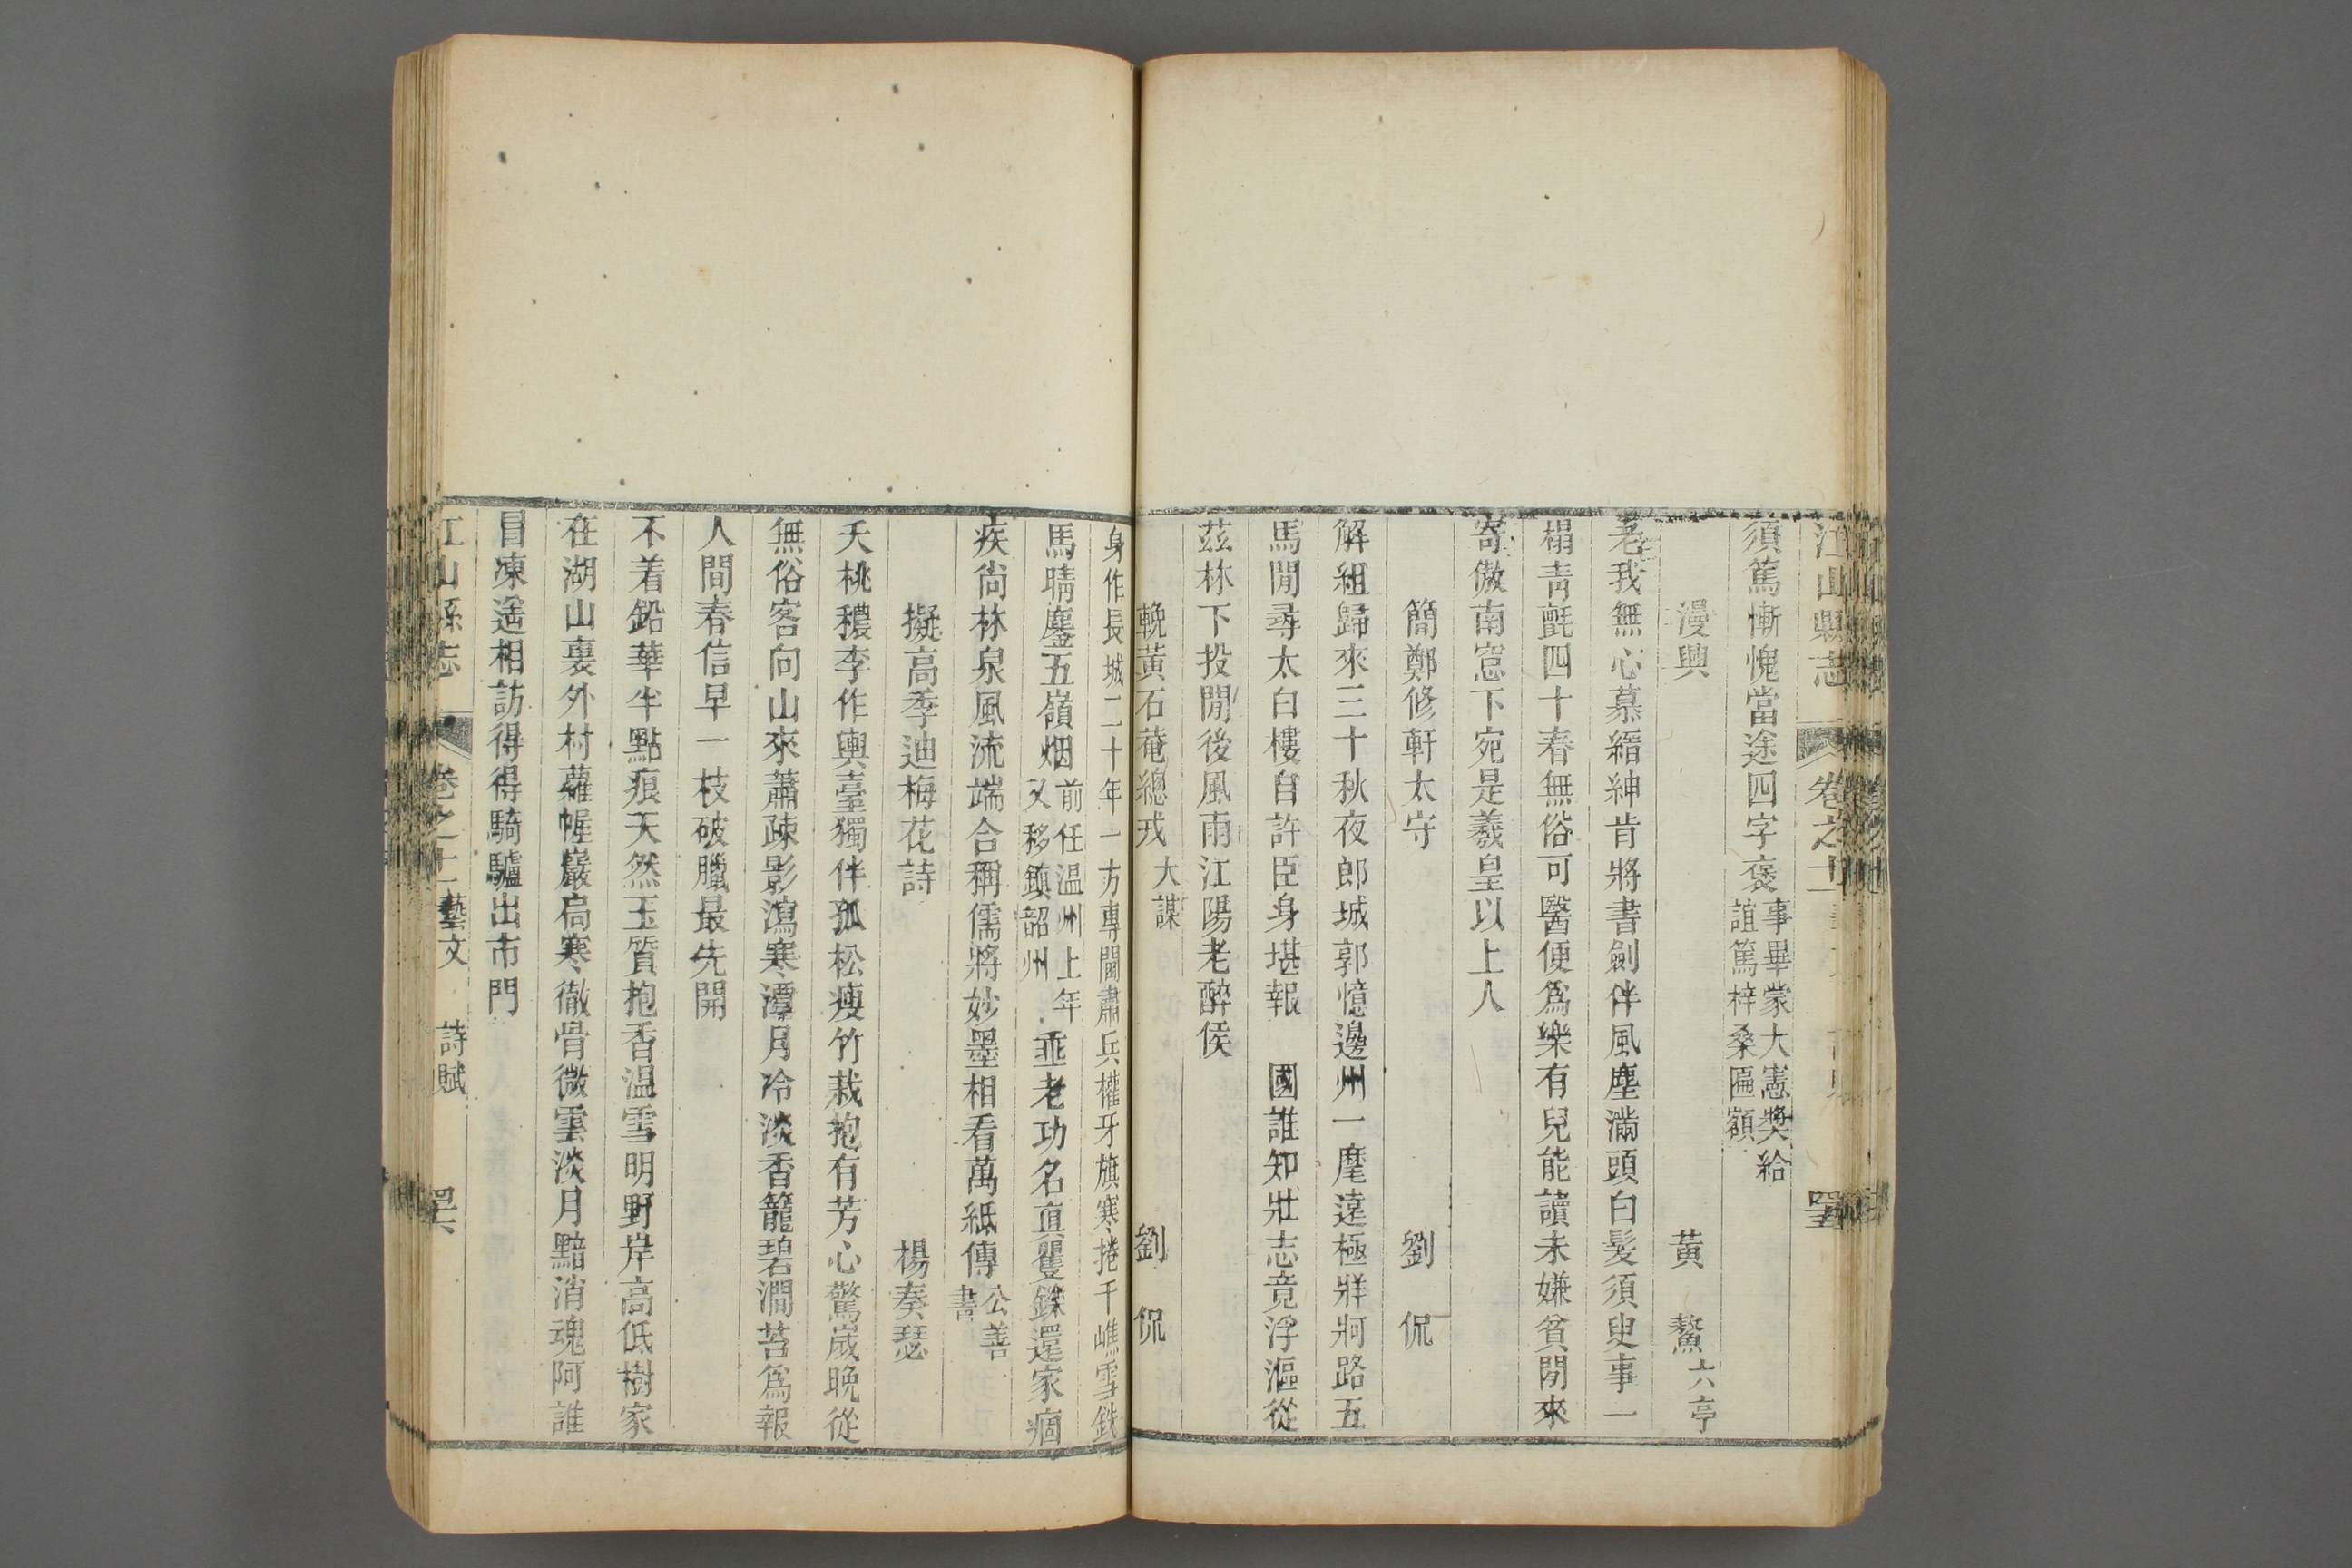 江山縣志 卷之十一
須篤慚愧當途四字褒 事畢蒙大憲奬給誼篤梓桑匾額
漫興 黃 鰲 六亭
老我無心慕縉紳肯將書劍伴風塵滿頭白髮須臾事一
榻靑氈四十春無俗可醫便爲樂有兒能讀未嫌貧閒來
寄傲南窓下宛是羲皇以上人
簡鄭修軒太守 劉 侃
解組歸來三十秋夜郎城郭憶邊州一麾遠極牂牁路五
馬閒尋太白樓自許臣身堪報 國誰知壯志竟浮漚從
茲林下投閒後風雨江陽老醉侯
輓黃石菴總戎 大謀 劉 侃
身作長城二十年一方專閫肅兵權牙旗寒捲千嶕雪鉄
馬晴鏖五嶺烟 前任温州上年又移鎮韶州 垂老功名眞矍鑠還家痼
疾尙林泉風流端合稱儒將妙墨相看萬紙傳 公善書
擬高季迪梅花詩 楊奏瑟
夭桃穠李作輿臺獨伴孤松瘦竹栽抱有芳心驚嵗晚從
無俗客向山來蕭疎影瀉寒潭月冷淡香籠碧澗苔爲報
人間春信早一枝破臘最先開
不着鉛華半點痕天然玉質抱香温雪明野岸高低樹家
在湖山裏外村蘿幄巖扃寒徹骨微雲淡月黯消魂阿誰
冒凍遥相訪得得騎驢出市門
江山縣志 卷之十一藝文 詩賦 罡六